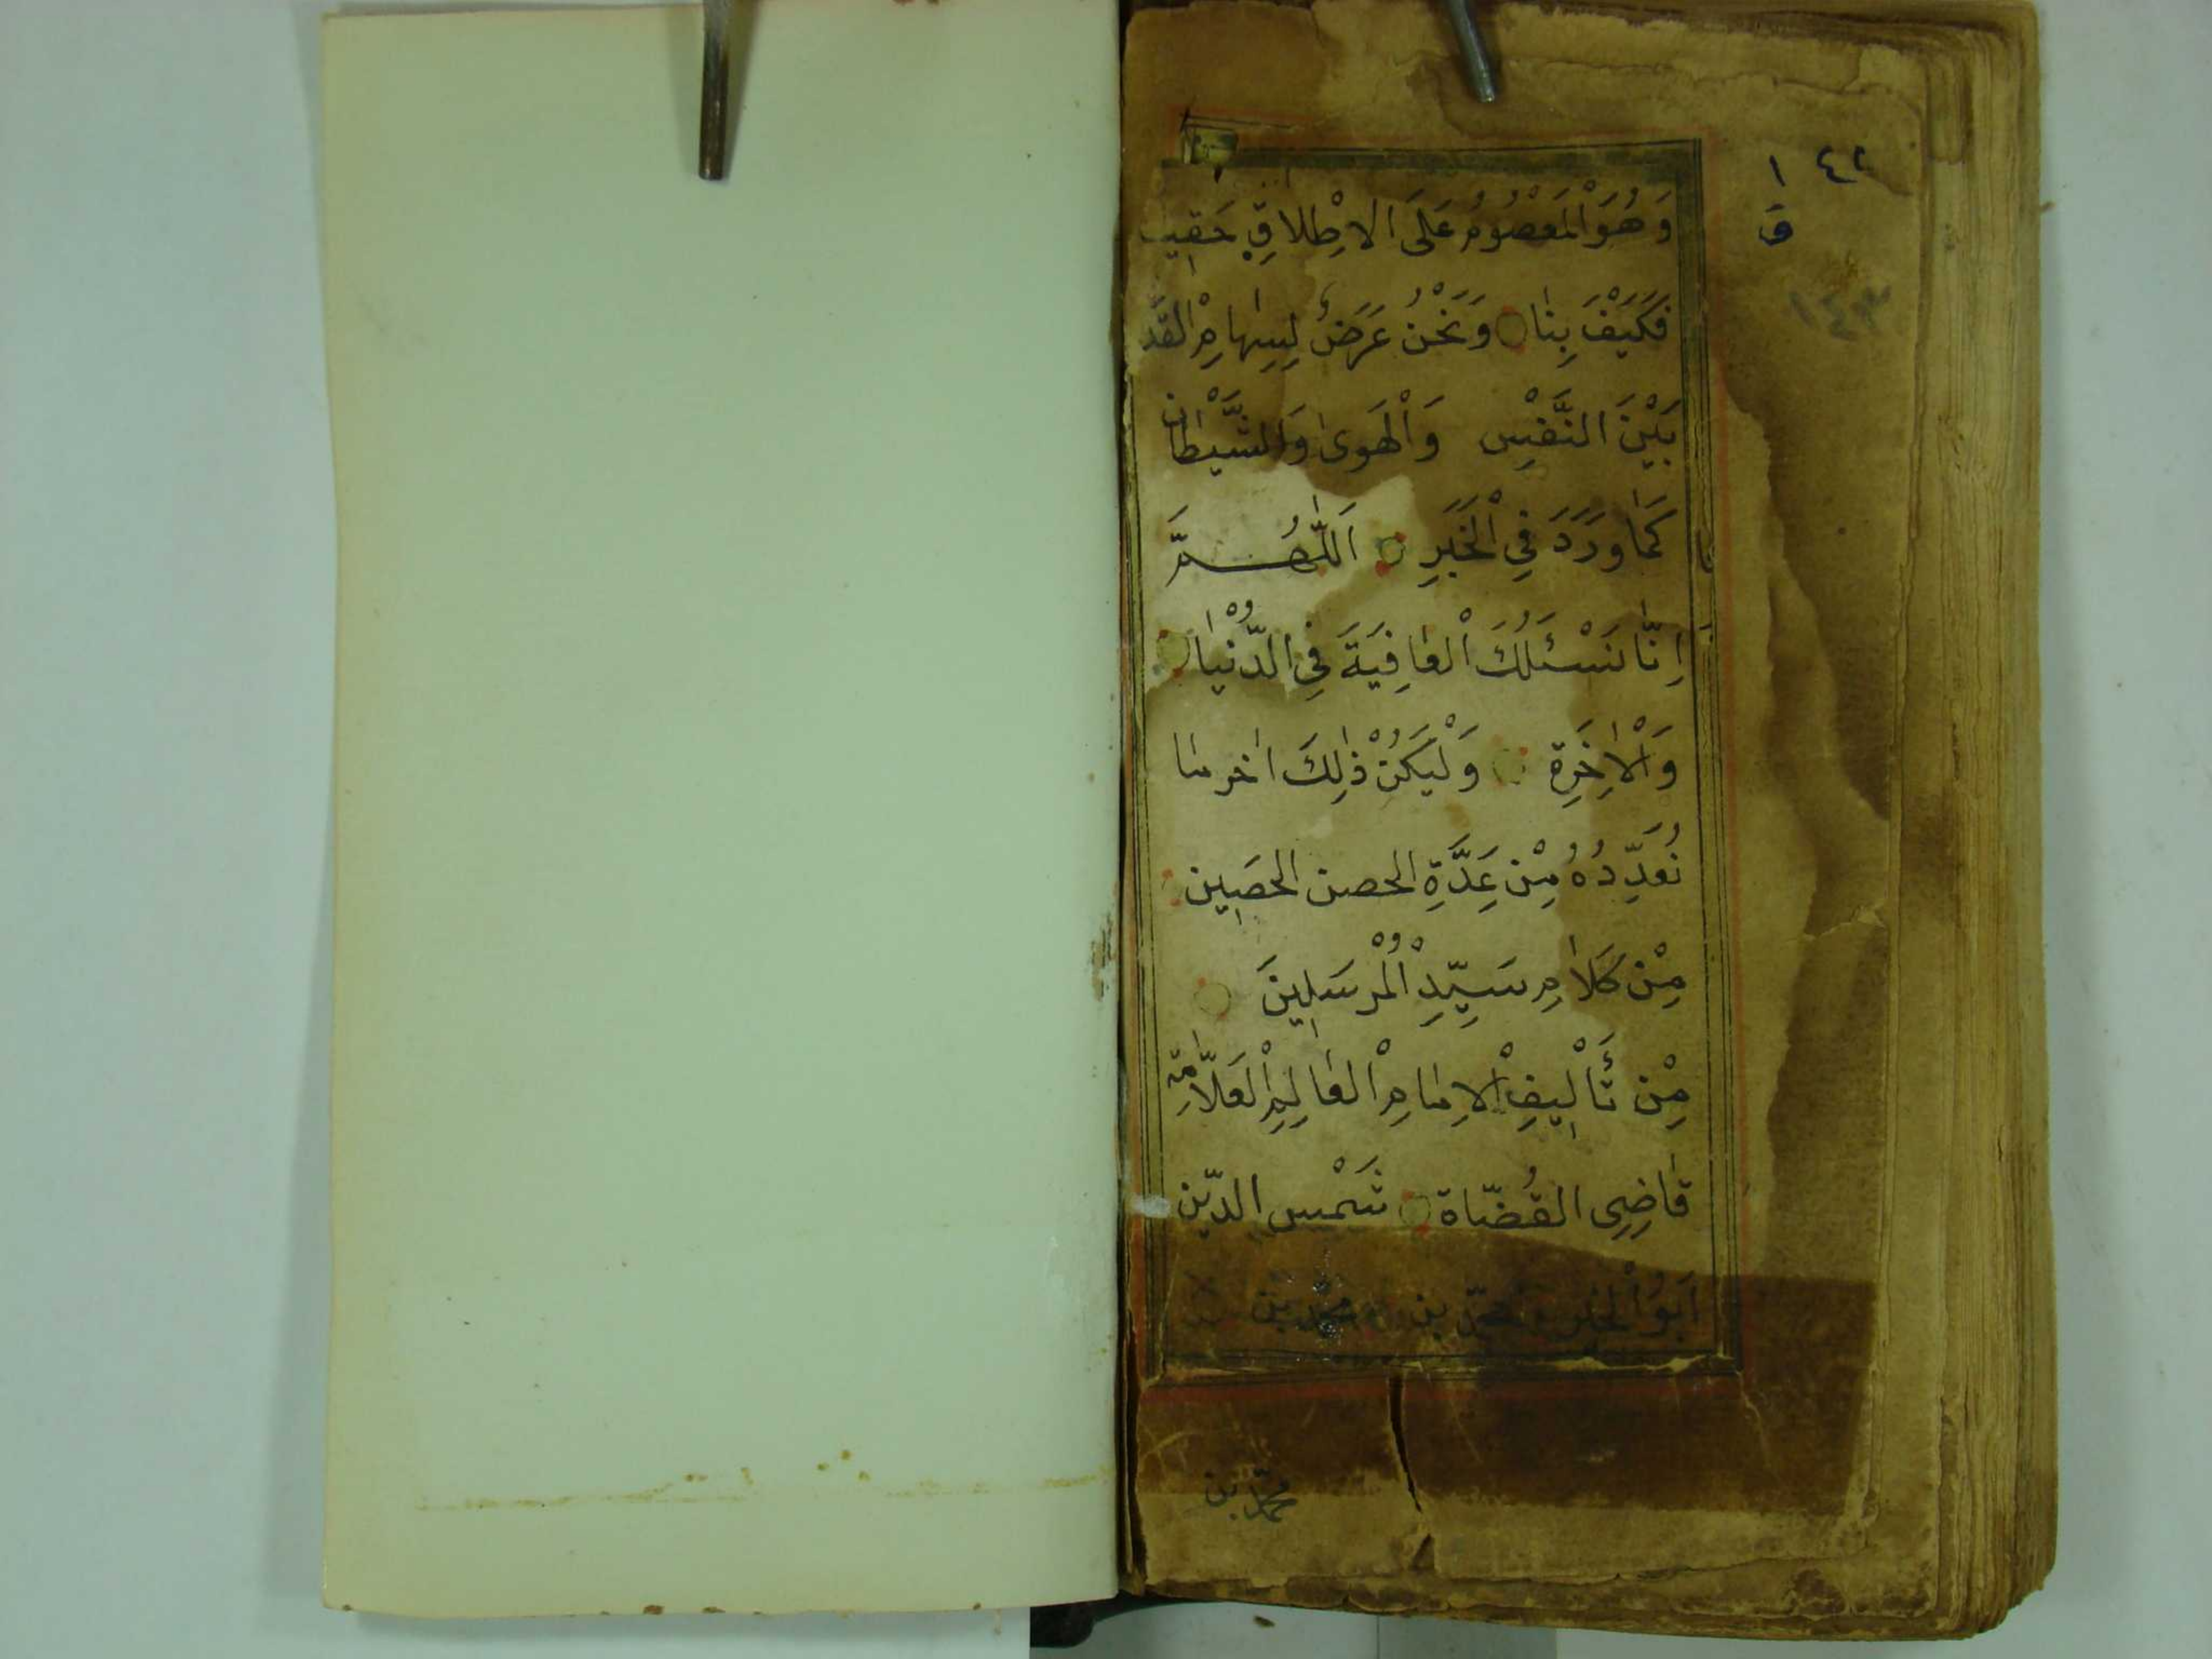 ١ ٤٢
ق
١٤٣
وَهُوَ الْمَعْصُومُ عَلَى الْاِطْلَاقِ حَقِيقَ
فَكَيْفَ بِنَا وَنَحْنُ عَرَضٌ لِسِهَامِ الْقَدَ
بَيْنَ النَّفْسِ وَالْهَوٰى وَالشَّيْطَانِ
كَمَا وَرَدَ فِي الْخَبَرِ اَللّٰهُمَّ
اِنَّا نَسْئَلُكَ الْعَافِيَةَ فِي الدُّنْيَا
وَالْاٰخِرَةِ وَلْيَكُنْ ذٰلِكَ اٰخر ما
نُعَدِّدُهُ مِنْ عِدَّةِ الحصن الحَصِين
مِنْ كَلَامِ سَيِّدِ الْمُرْسَلِينَ
مِنْ تَأْلِيفِ الْاِمَامِ الْعَالِمِ الْعَلَّامَةِ
قَاضِى القُضّاة شَمْس الدّين
اَبُو الْخَير محمّد بن محمّد بن
محمّد بن